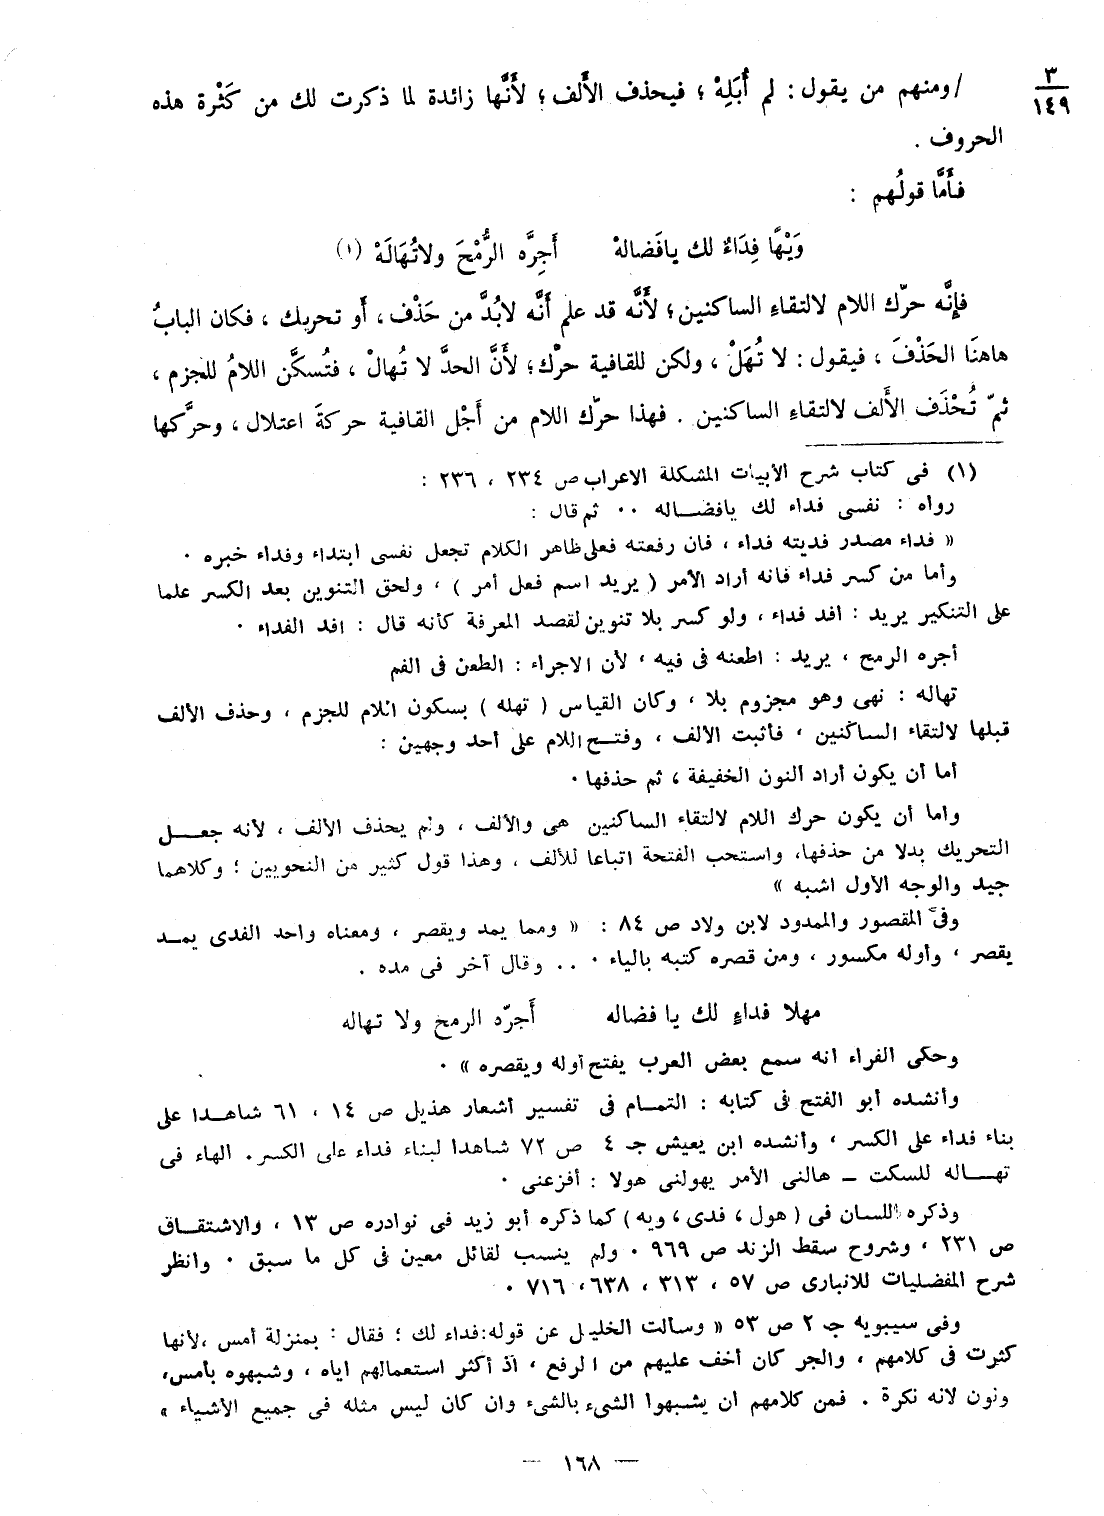 ٣
١٤٩
/ومنهم من يقول : لم أُبَلِهْ ؛ فيحذف الأَلف ؛ لأَنَّها زائدة لما ذكرت لك من كَثْرة هذه
الحروف .
فأَمَّا قولُهم :
وَيْهًا فِدَاءٌ لك يافَضالهْ أَجِرَّه الرُّمْحَ ولاتُهَالَهْ (١)
فإِنَّه حرّك اللام لالتقاءِ الساكنين ؛ لأَنَّه قد علم أَنَّه لابُدَّ من حَذْف ، أَو تحريك ، فكان البابُ
هاهنَا الحَذْفَ ، فيقول : لا تُهَلْ ، ولكن للقافية حرّك ؛ لأَنَّ الحدَّ لا تُهالْ ، فتُسكَّن اللامُ للجزم ،
ثمّ تُحْذَف الأَلف لالتقاءِ الساكنين . فهذا حرّك اللام من أَجْل القافية حركةَ اعتلال ، وحرَّكها
(١) فى كتاب شرح الأبيات المشكلة الاعراب ص ٢٣٤ ، ٢٣٦ :
رواه : نفسى فداء لك يافضاله ٠٠ ثم قال :
« فداء مصدر فديته فداء ، فان رفعته فعلى ظاهر الكلام تجعل نفسى ابتداء وفداء خبره ٠
وأما من كسر فداء فانه أراد الأمر ( يريد اسم فعل أمر ) ، ولحق التنوين بعد الكسر علما
على التنكير يريد : افد فداء ، ولو كسر بلا تنوين لقصد المعرفة كأنه قال : افد الفداء ٠
أجره الرمح ، يريد : اطعنه فى فيه ، لأن الاجراء : الطعن فى الفم
تهاله : نهى وهو مجزوم بلا ، وكان القياس ( تهله ) بسكون اللام للجزم ، وحذف الألف
قبلها لالتقاء الساكنين ، فأثبت الألف ، وفتح اللام على أحد وجهين :
أما أن يكون أراد النون الخفيفة ، ثم حذفها ٠
واما أن يكون حرك اللام لالتقاء الساكنين هى والألف ، ولم يحذف الألف ، لأنه جعل
التحريك بدلا من حذفها، واستحب الفتحة اتباعا للألف ، وهذا قول كثير من النحويين ؛ وكلاهما
جيد والوجه الأول اشبه »
وفى المقصور والممدود لابن ولاد ص ٨٤ : « ومما يمد ويقصر ، ومعناه واحد الفدى يمد
يقصر ، وأوله مكسور ، ومن قصره كتبه بالياء ٠ .. وقال آخر فى مده .
مهلا فداءٍ لك يا فضاله أَجرّه الرمح ولا تهاله
وحكى الفراء انه سمع بعض العرب يفتح أوله ويقصره » ٠
وأنشده أبو الفتح فى كتابه : التمام فى تفسير أشعار هذيل ص ١٤ ، ٦١ شاهدا على
بناء فداء على الكسر ، وأنشده ابن يعيش جـ ٤ ص ٧٢ شاهدا لبناء فداء على الكسر . الهاء فى
تهاله للسكت ــ هالنى الأمر يهولنى هولا : أفزعنى ٠
وذكره اللسان فى ( هول ، فدى ، ويه ) كما ذكره أبو زيد فى نوادره ص ١٣ ، والاشتقاق
ص ٢٣١ ، وشروح سقط الزند ص ٩٦٩ ٠ ولم ينسب لقائل معين فى كل ما سبق ٠ وانظر
شرح المفضليات للانبارى ص ٥٧ ، ٣١٣ ، ٦٣٨ ، ٧١٦ ٠
وفى سيبويه جـ ٢ ص ٥٣ « وسالت الخليل عن قوله : فداء لك ؛ فقال : بمنزلة أمس ، لأنها
كثرت فى كلامهم ، والجر كان أخف عليهم من الرفع ، اذ أكثر استعمالهم اياه ، وشبهوه بأمس،
ونون لانه نكرة . فمن كلامهم ان يشبهوا الشىء بالشىء وان كان ليس مثله فى جميع الأشياء »
— ١٦٨ —